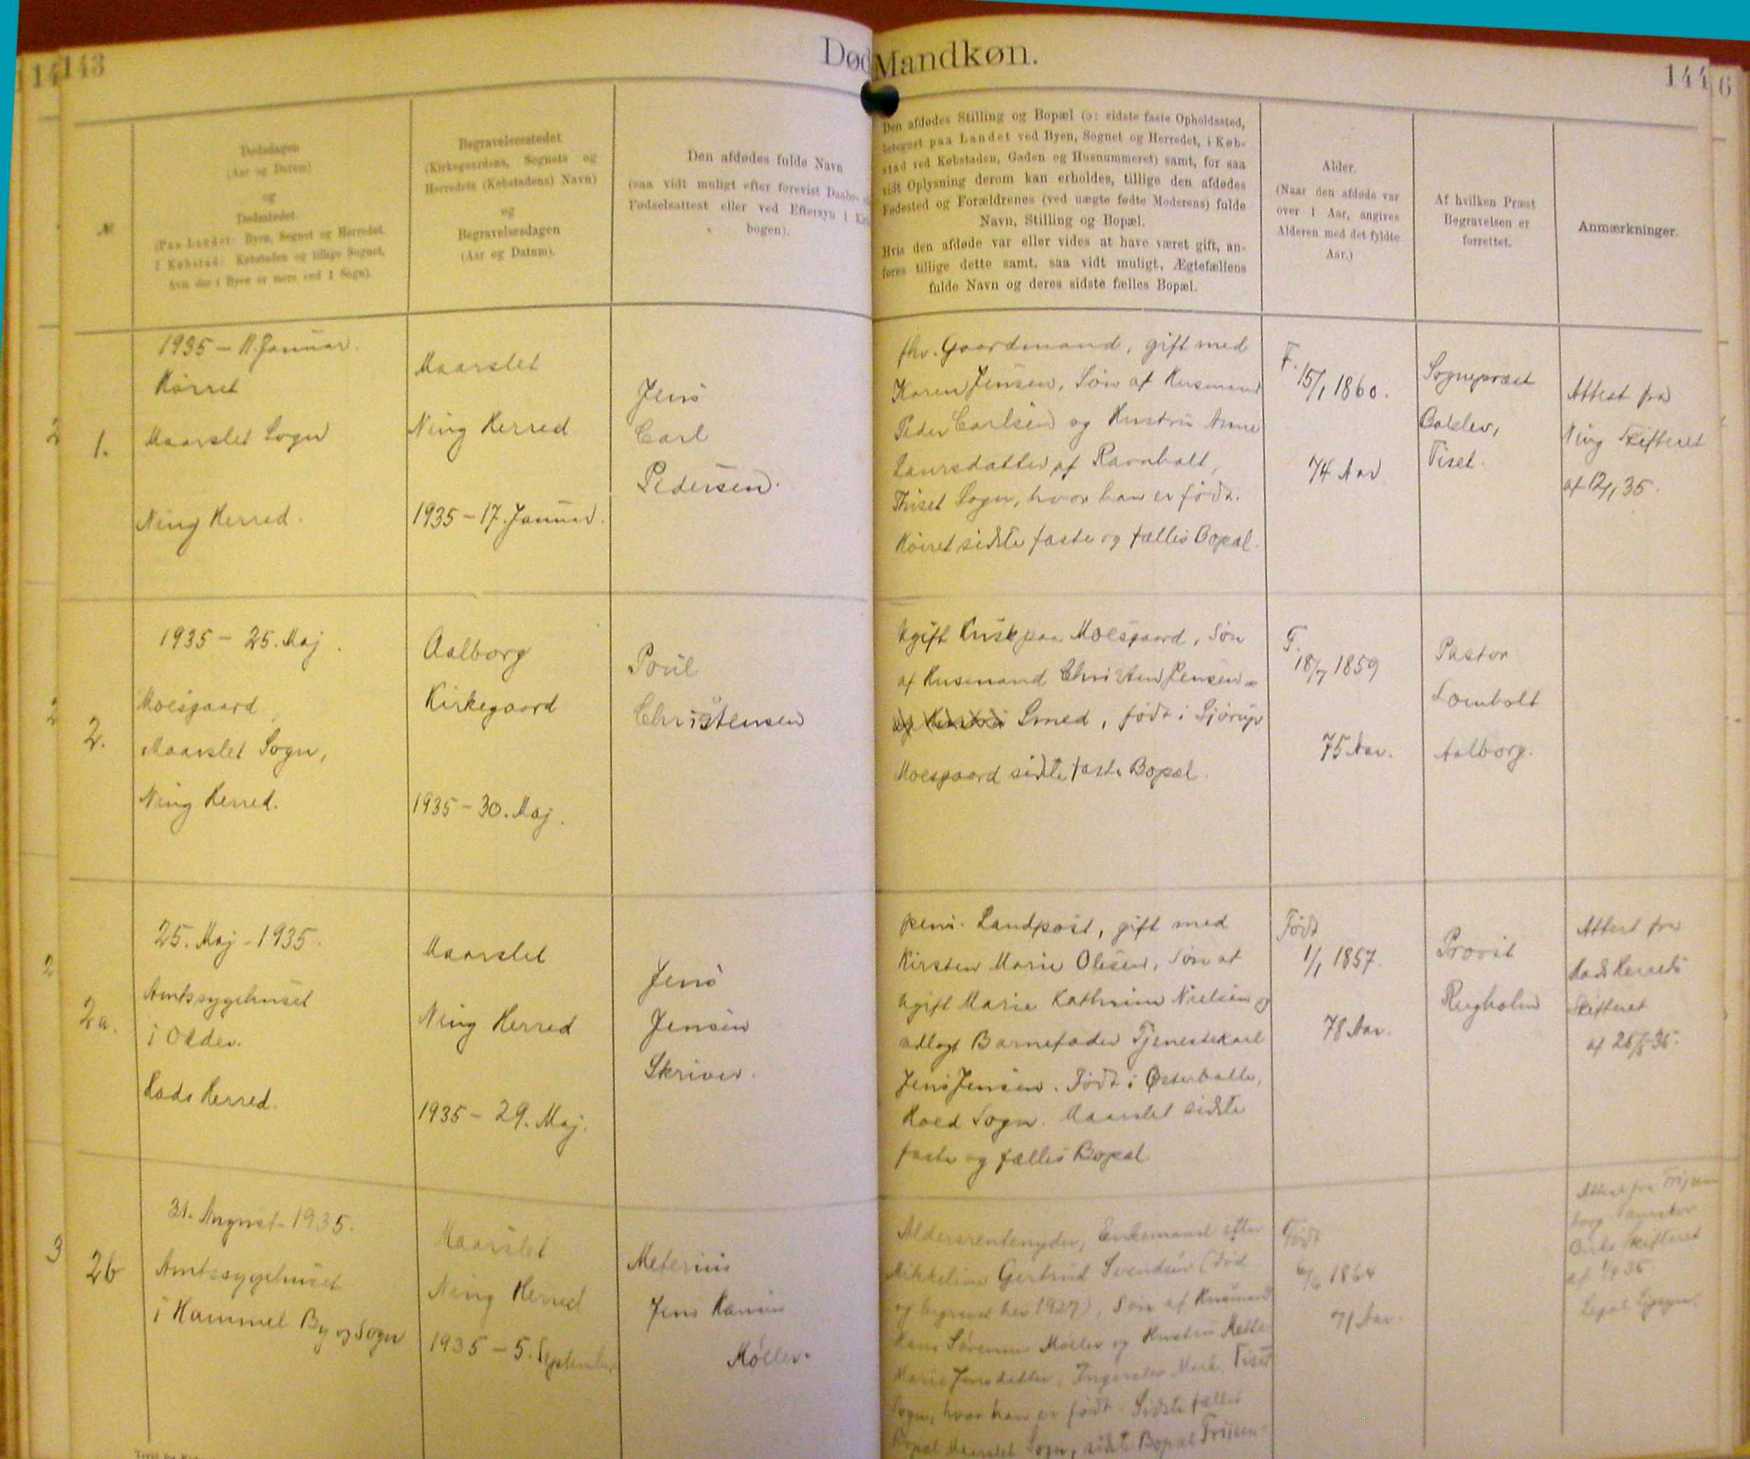 143
Død
Mandkøn.
144
6
№
Dødsdagen
(Aar og Datum)
og
Dødsstedet
(Paa Landet: Byen, Sognet og Herredet,
i Købstad: Købstaden og tillige Sognet,
hvis der i Byen er mere end 1 Sogn).
Begravelsesstedet
(Kirkegaardens, Sognets og
Herredets (Købstadens) Navn)
og
Begravelsesdagen
(Aar og Datum).
Den afdødes fulde Navn
(saa vidt muligt efter forevist Daabs-
Fødselsattest eller ved Eftersyn i
bogen).
Den afdødes Stilling og Bopæl (ɔ: sidste faste Opholdssted,
betegnet paa Landet ved Byen, Sognet og Herredet, i Køb-
stad ved Købstaden, Gaden og Husnummeret) samt, for saa
vidt Oplysning derom kan erholdes, tillige den afdødes
Fødested og Forældrenes (ved uægte fødte Moderens) fulde
Navn, Stilling og Bopæl.
Hvis den afdøde var eller vides at have været gift, an-
føres tillige dette samt, saa vidt muligt, Ægtefællens
fulde Navn og deres sidste fælles Bopæl.
Alder.
(Naar den afdøde var
over 1 Aar, angives
Alderen med det fyldte
Aar.)
Af hvilken Præst
Begravelsen er
forrettet.
Anmærkninger.
1.
1935 - 11. Januar.
Hørret
Maarslet Sogn
Ning Herred.
Maarslet
Ning Herred
1935 - 17. Januar.
Jens
Carl
Pedersen.
fhv. Gaardmand, gift med
Karen Jensen, Søn af Husmand
Peder Carlsen og Hustru Anne
Laursdatter af Ravnholt,
Tiset Sogn, hvor han er født.
Hørret sidste faste og fælles Bopæl.
F.
15/1 1860.
74 Aar
Sognepræst
Balslev,
Tiset.
Attest fra
Ning Skifteret
af 12/1 35.
2.
1935 - 25. Maj.
Moesgaard
Maarslet Sogn,
Ning Herred.
Aalborg
Kirkegaard
1935 - 30. Maj.
Poul
Christensen
Ugift Kusk paa Moesgaard, Søn
af Husmand Christen Jensen
og Hustru Smed, født i Sjørup
Moesgaard sidste faste Bopæl.
F.
18/7 1859
75 Aar.
Pastor
Lomholt
Aalborg.
2a.
25. Maj - 1935.
Amtssygehuset
i Odder.
Hads Herred.
Maarslet
Ning Herred
1935 - 29. Maj.
Jens
Jensen
Skriver.
pens. Landpost, gift med
Kirsten Marie Olesen, Søn af
ugift Marie Kathrine Nielsen og
udlagt Barnefader Tjenestekarl
Jens Jensen. Født i Østerballe,
Hoed Sogn. Maarslet sidste
faste og fælles Bopæl
Født
1/1 1857.
78 Aar.
Provst
Rugholm
Attest fra
Hads Herreds
Skifteret
af 26/5 35.
2b
31. August - 1935.
Amtssygehuset
i Hammel By og Sogn
Maarslet
Ning Herred
1935 - 5. September
Meterius
Jens Hansen
Møller.
Aldersrentenyder, Enkemand efter
Mikkeline Gertrud Svendsen (død
og begravet her 1927), Søn af Husmand
Hans Sørensen Møller og Hustru Mette
Marie Jensdatter, Ingerslev Mark, Tiset
Sogn, hvor han er født. Sidste fælles
Bopæl Maarslet Sogn, sidste Bopæl Frijsen-
Født
1864
71 Aar.
Attest fra Frijsen
Birks Skifteret